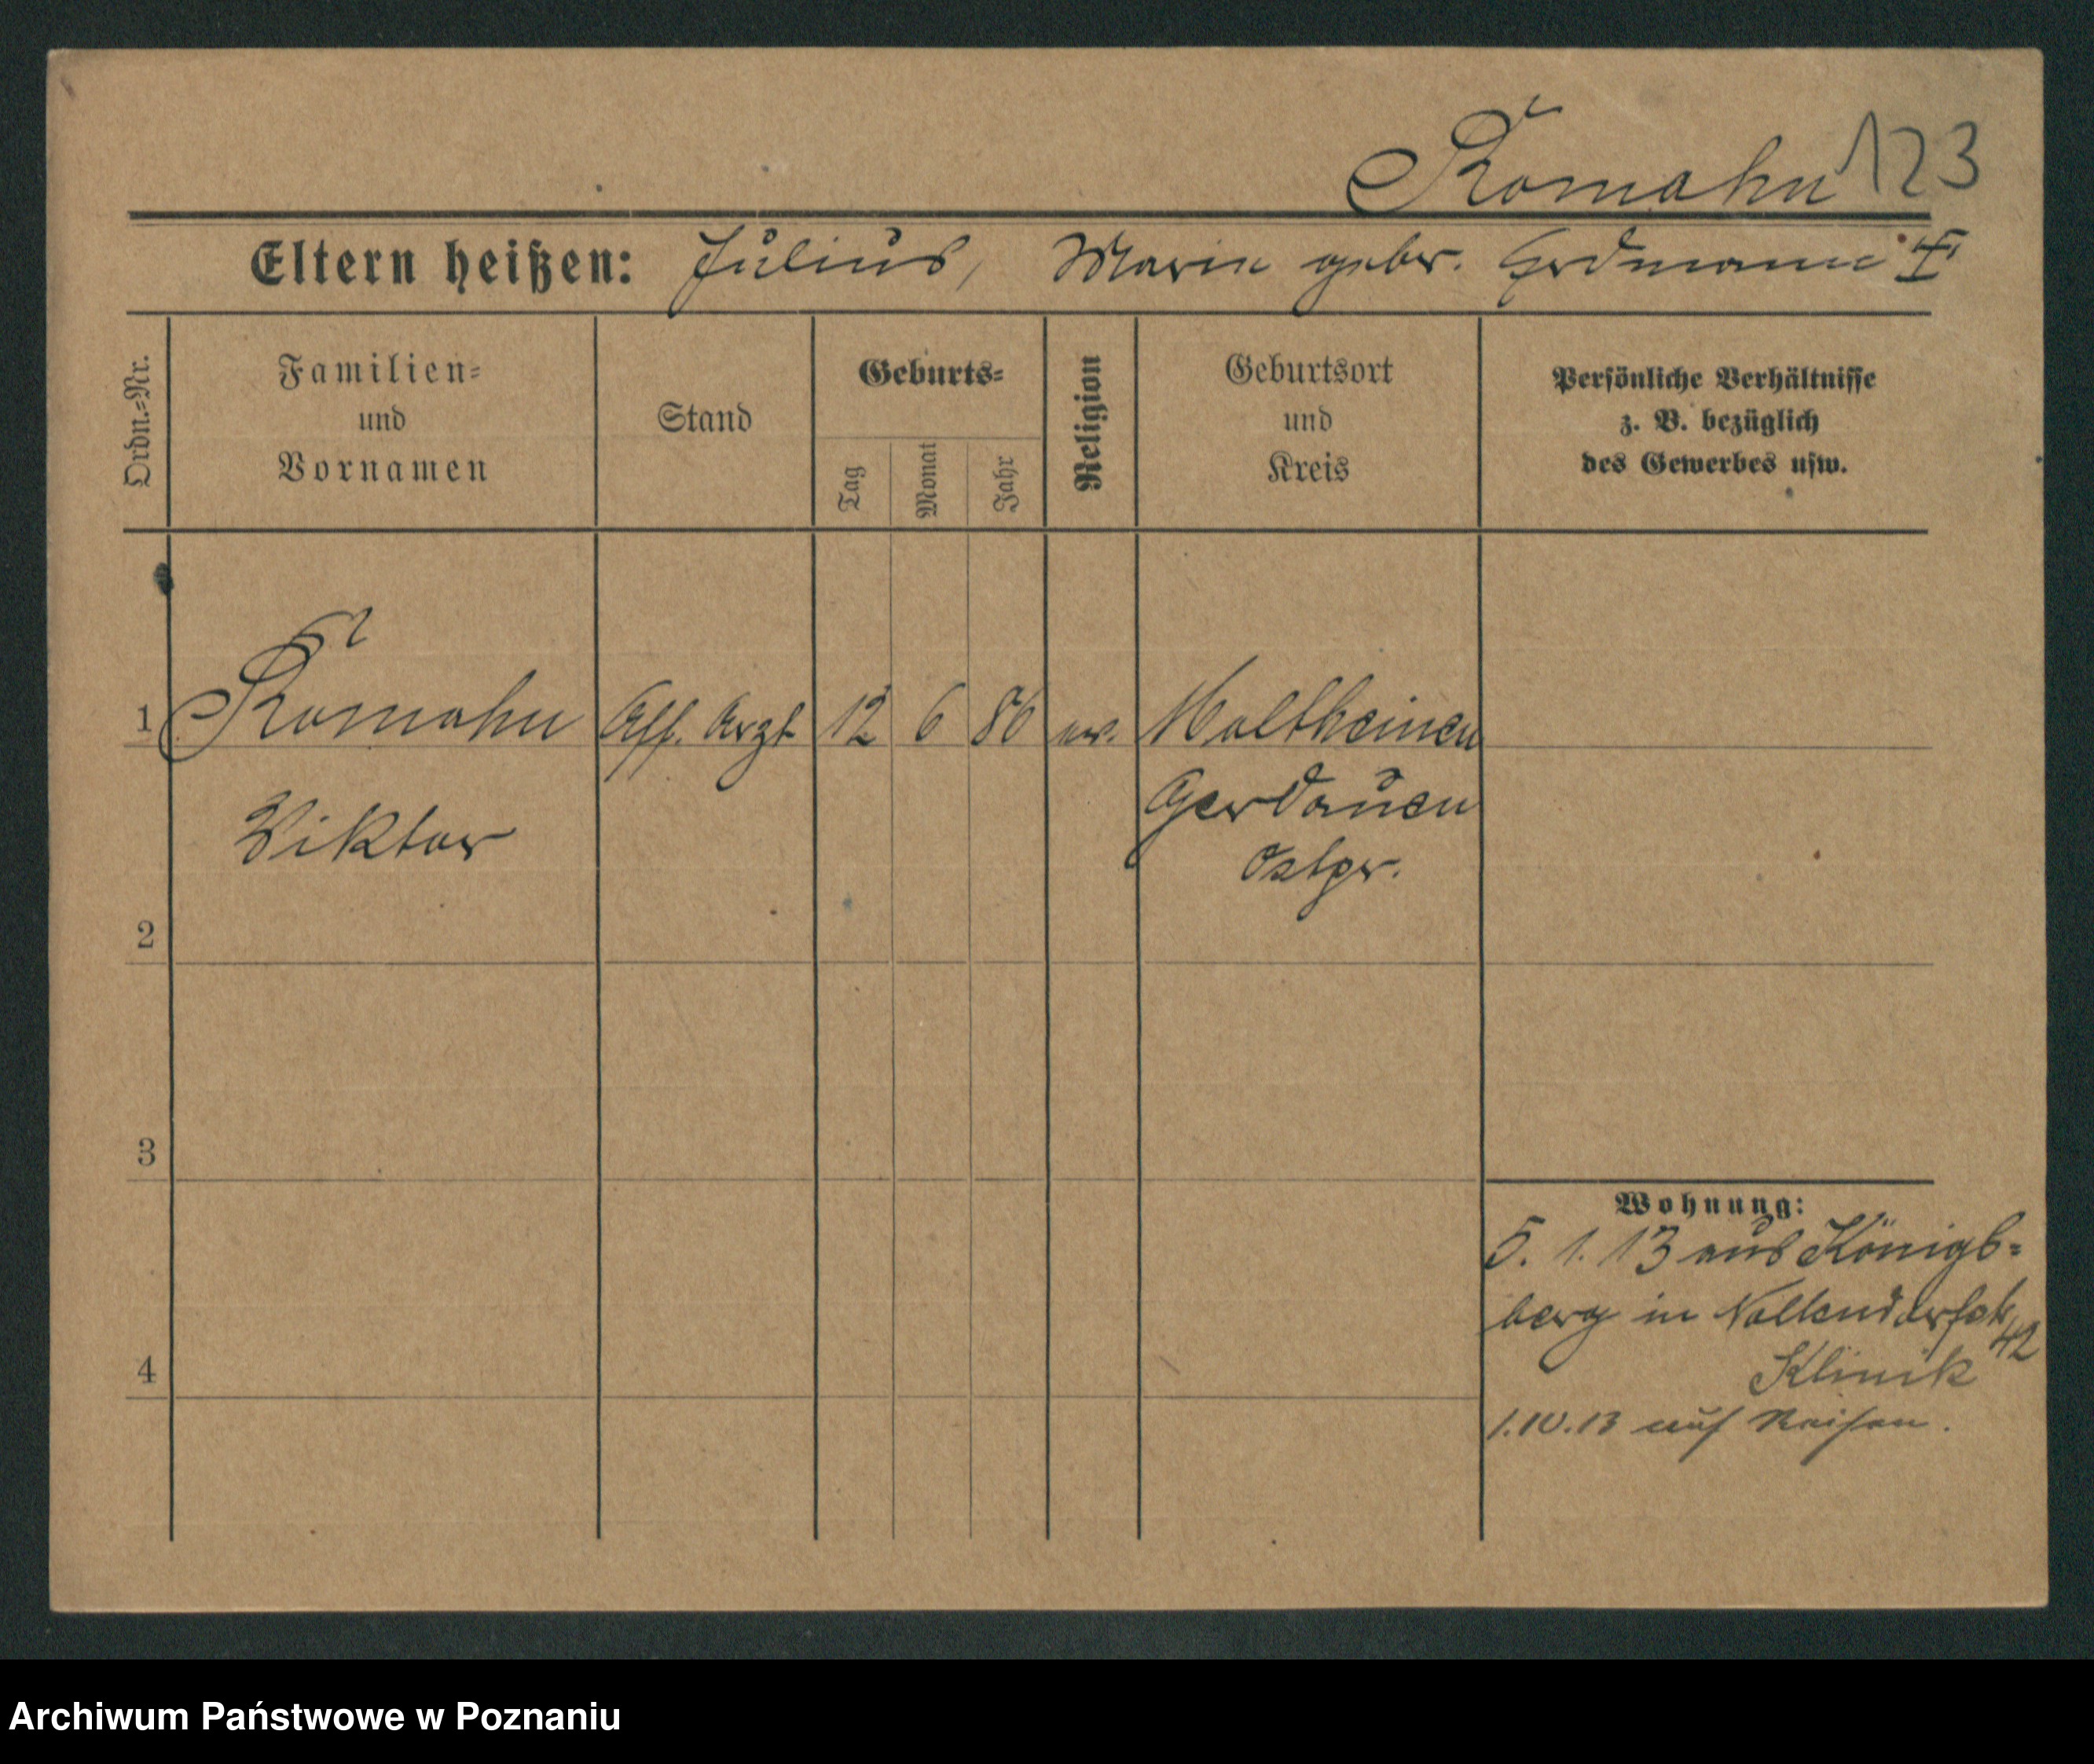 Romahn 123
Eltern heißen: Julius, Marie geber. Erdmann
Ordn.=Nr.
Familien=
und
Vornamen
Stand
Geburts=
Tag
Monat
Jahr
Religion
Geburtsort
und
Kreis
Persönliche Verhältnisse
z. B. bezüglich
des Gewerbes usw.
1 Romahn Ass. Arzt 12 6 86 ev. Moltheinen
Viktor Gerdauen
Ostpr.
2
3
Wohnung:
5. 1. 13 aus Königs=
berg in Nollendorfstr
42
4 Klinik
1.10.13 auf Reisen.
Archiwum Państwowe w Poznaniu